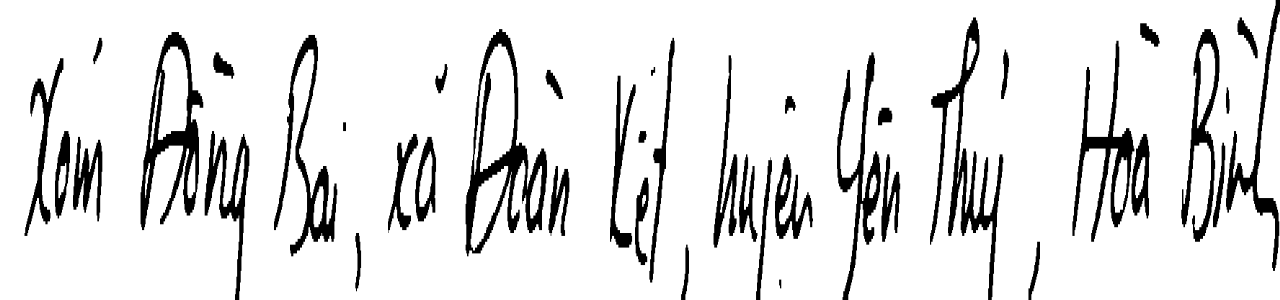 Xóm Đồng Bai, xã Đoàn Kết, huyện Yên Thuỷ, Hoà Bình